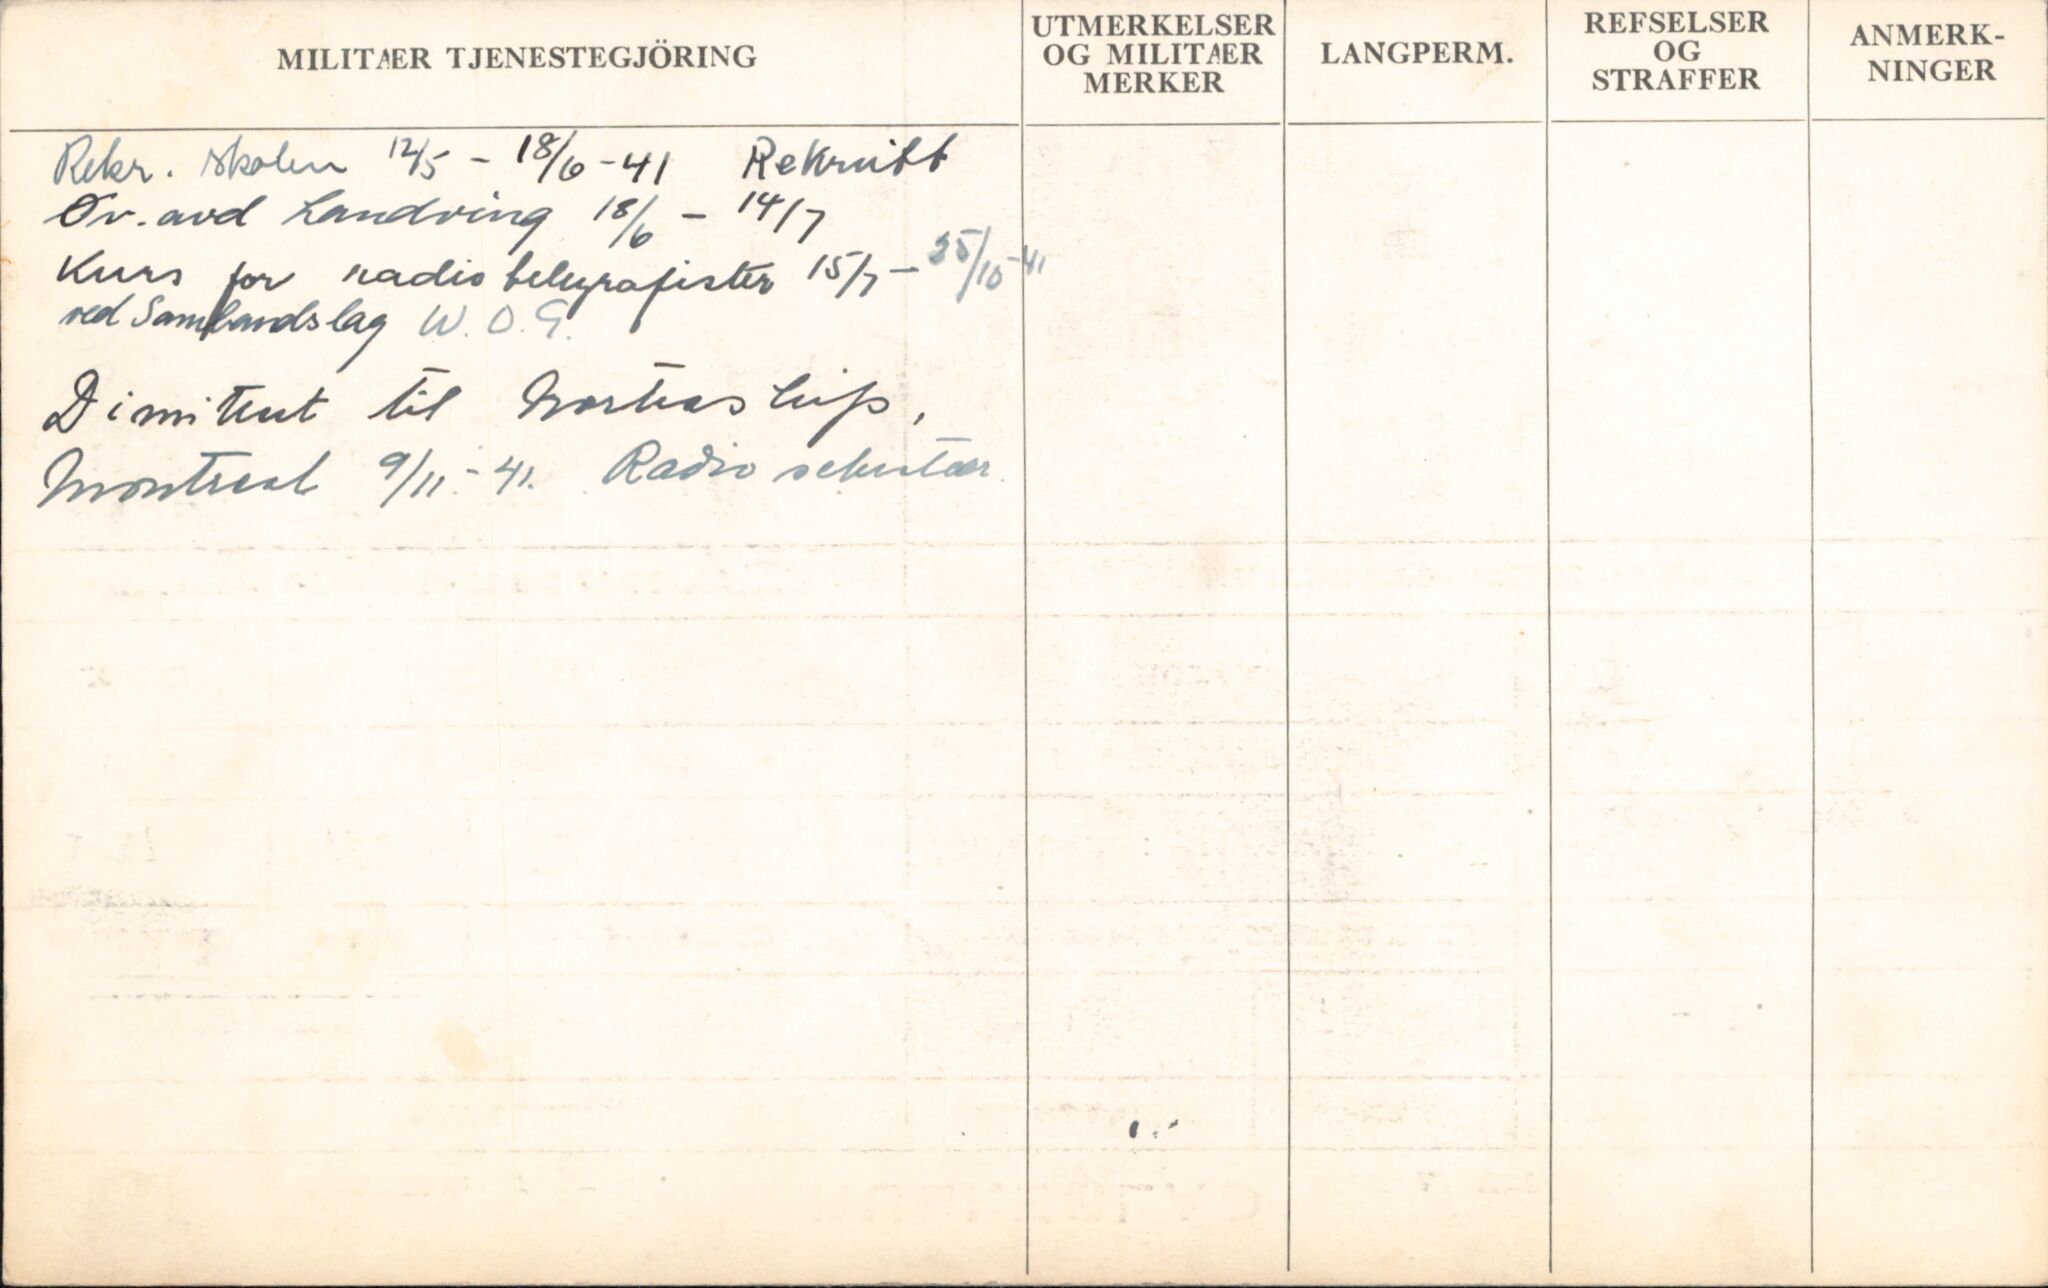 MILITÆR TJENESTEGJÖRING
UTMERKELSER
OG MILITÆR
MERKER
LANGPERM.
REFSELSER
OG
STRAFFER
ANMERK-
NINGER
Rekr. skolen 12/5 - 18/6 - 41 Rekrutt
Öv. avd Landving 18/6 - 14/7
Kurs for radiotelegrafister 15/7 - 25/10-41
ved Sambandslag W.O.G.
Dimittert til Nortraship,
Montreal 9/11 - 41. Radio sekretær.